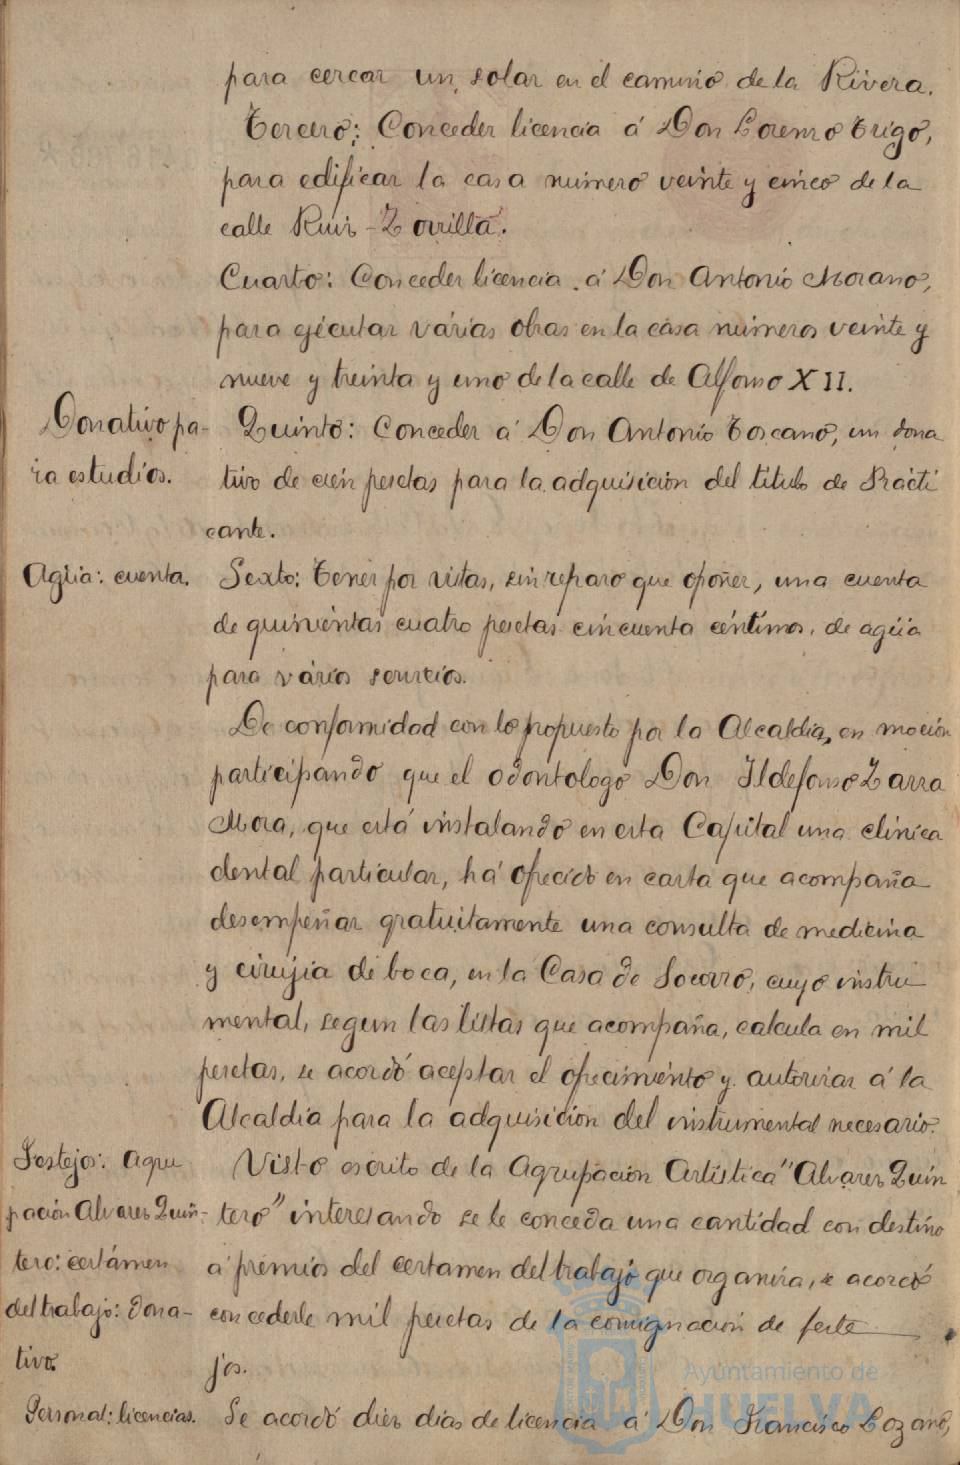 para cercar un solar en el camino de la Rivera.
Tercero: Conceder licencia á Don Lorenzo Trigo,
para edificar la casa numero veinte y cinco de la
calle Ruiz-Zorrilla.
Cuarto: Conceder licencia á Don Antonio Morano,
para ejecutar várias obras en la casa numeros veinte y
nueve y treinta y uno de la calle de Alfonso XII.
Donativo pa-
ra estudios.
Quinto: Conceder á Don Antonio Toscano, un dona
tivo de cien pesetas para la adquisición del titulo de Practi
cante.
Agua: cuenta.
Sexto: Tener por vistas, sin reparo que oponer, una cuenta
de quinientas cuatro pesetas cincuenta céntimos, de agua
para vários servicios.
De conformidad con lo propuesto por la Alcaldia, en moción
participando que el odontologo Don Ildefonso Zarra
Mora, que está instalando en esta Capital una clinica
dental particular, há ofrecido en carta que acompaña
desempeñar gratuitamente una consulta de medicina
y cirujia de boca, en la Casa de Socorro, cuyo instru
mental, segun las listas que acompaña, calcula en mil
pesetas, se acordó aceptar el ofrecimiento y autorizar á la
Alcaldia para la adquisición del instrumental necesario.
Festejos: Agru
pación Alvarez Quin-
tero: certámen
del trabajo: dona-
tivo.
Visto escrito de la Agrupación Artistica "Alvarez Quin
tero" interesando se le conceda una cantidad con destino
á premios del certamen del trabajo que organiza, se acordó
concederle mil pesetas de la consignación de feste
jos.
Personal: licencias.
Se acordó diez dias de licencia á Don Francisco Lozano,
Ayuntamiento de
HUELVA